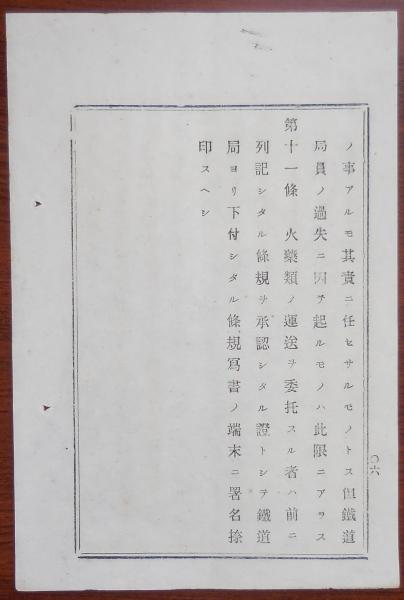 ノ事アルモ其責ニ任セサルモノトス但鐵道
局員ノ過失ニ因テ起ルモノハ此限ニアラス
第十一條 火藥類ノ運送ヲ委托スル者ハ前ニ
列記シタル條規ヲ承認シタル證トシテ鐵道
局ヨリ下付シタル條規寫書ノ端末ニ署名捺
印スヘシ
〇六